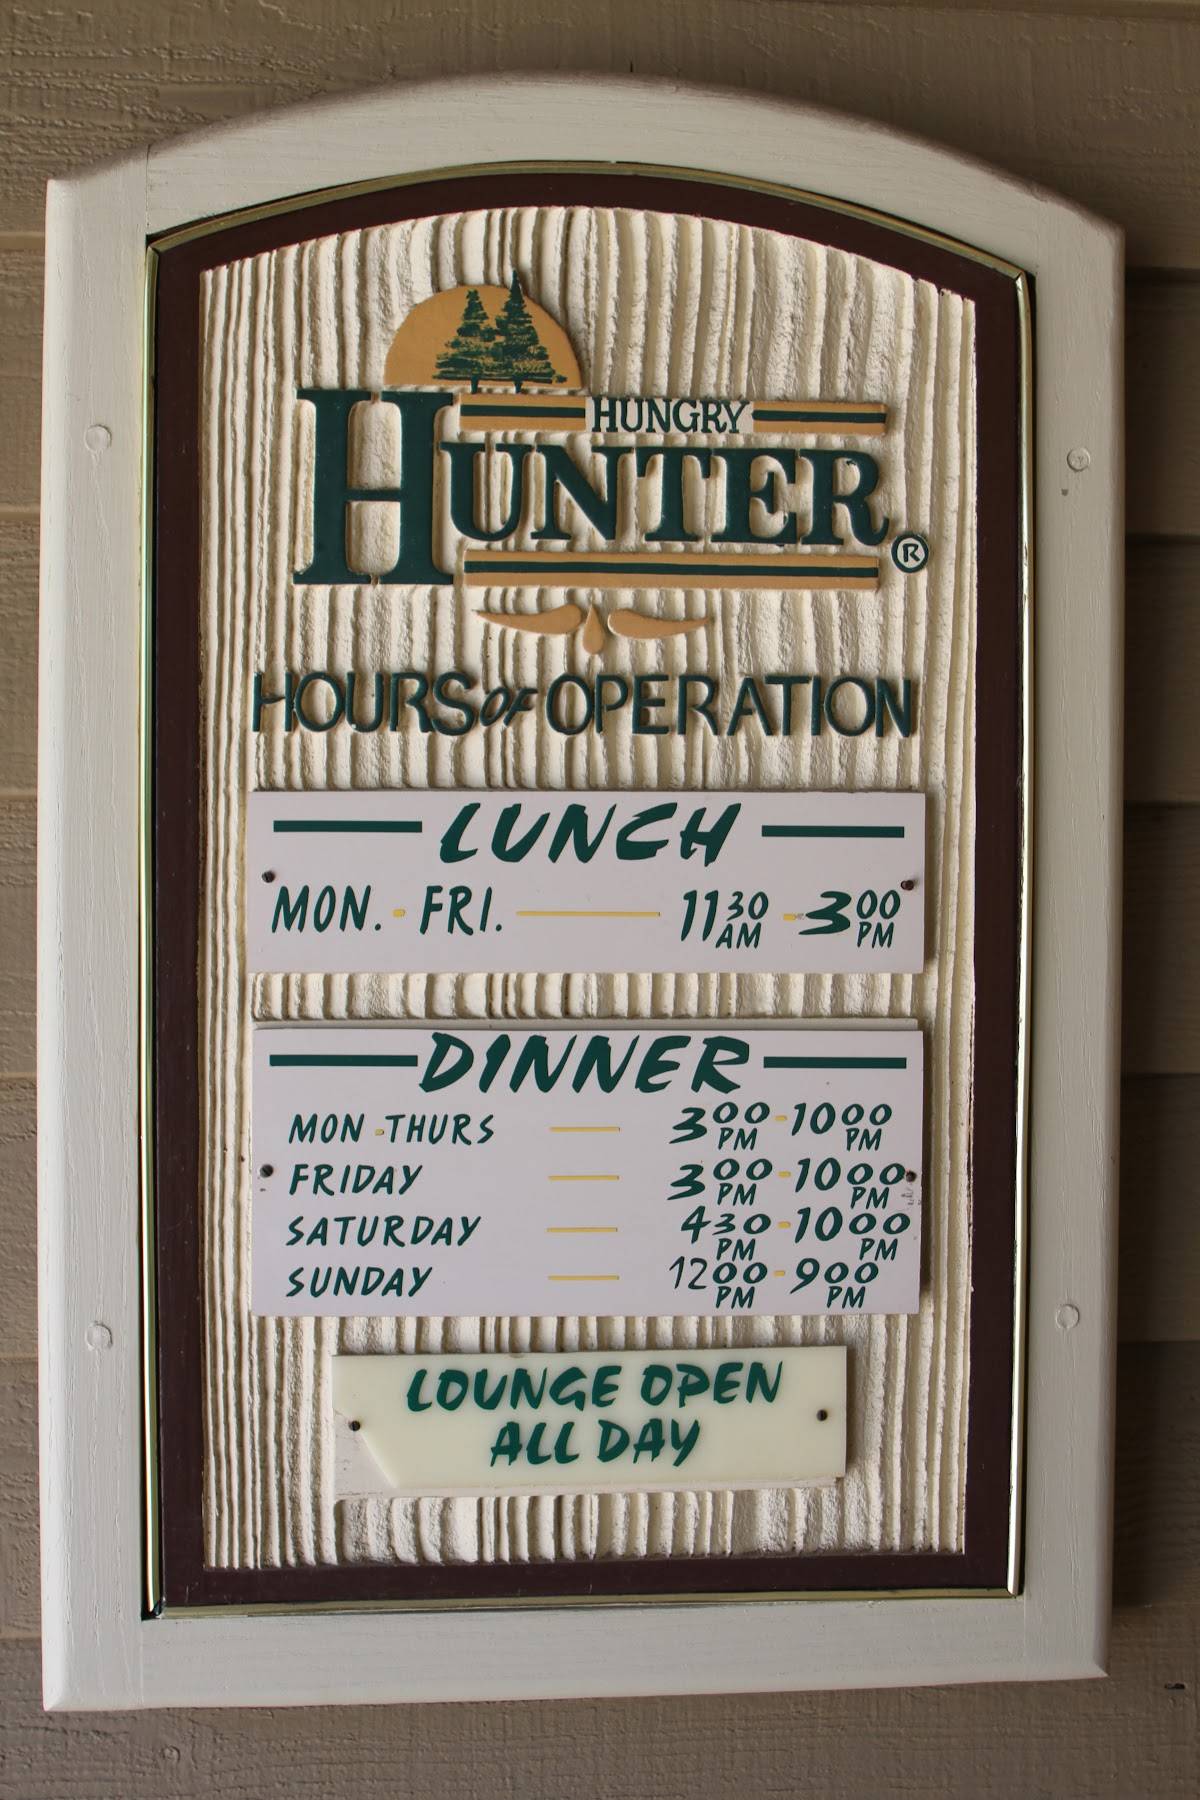 HUNGRY
HUNTER ®
HOURS OF OPERATION
LUNCH
MON. - FRI. — 11 30 AM - 3 00 PM
DINNER
MON - THURS — 3 00 PM - 10 00 PM
FRIDAY — 3 00 PM - 10 00 PM
SATURDAY — 4 30 PM - 10 00 PM
SUNDAY — 12 00 PM - 9 00 PM
LOUNGE OPEN
ALL DAY